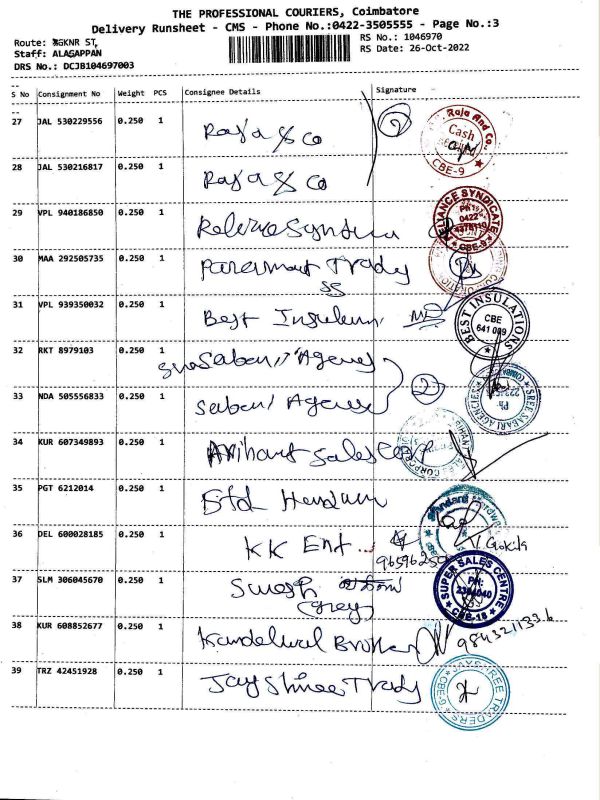 THE PROFESSIONAL COURIERS, Coimbatore
Delivery Runsheet - CMS - Phone No.:0422-3505555 - Page No.:3
Route: GKNR ST,
Staff: ALAGAPPAN
DRS No.: DCJB104697003
RS No.: 1046970
RS Date: 26-Oct-2022
S No Consignment No Weight PCS Consignee Details Signature
27 JAL 530229556 0.250 1 Raja & Co 2
Raja And Co. Cash CBE-9
28 JAL 530216817 0.250 1 Raja & Co
29 VPL 940186850 0.250 1
RELIANCE SYNDICATE 0422 CBE-9
30 MAA 292505735 0.250 1 Paramount Trady
SS
31 VPL 939350032 0.250 1 Best
BEST INSULATIONS CBE 641 009
32 RKT 8979103 0.250 1 Sabari Agency
33 NDA 505556833 0.250 1 Sabari Agency 2
SREE SABARI AGENCIES Ph
34 KUR 607349893 0.250 1 Arihant Sales Corp
35 PGT 6212014 0.250 1 Std
36 DEL 600028185 0.250 1 KK Ent
37 SLM 306045670 0.250 1
(grey)
SUPER SALES CENTRE PH: CBE-18
38 KUR 608852677 0.250 1 Kandelwal Brother
39 TRZ 42451928 0.250 1 Jay Shree Trady
JAYSHREE TRADERS CBE-9